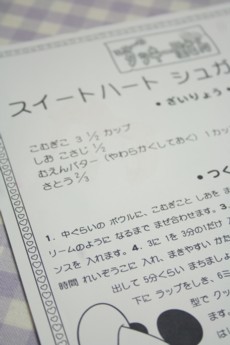 スイートハート シュガ
• ざいりょう •
こむぎこ 3 ½ カップ
しお こさじ ½
むえんバター (やわらかくしておく) 1カッ
さとう ⅔
• つく
1. 中ぐらいの ボウルに、こむぎことしおを
リームのように なるまで まぜ合わせます。3.
ンスを 入れます。4. 3に 1を 3分の1だけ 入
時間 れいぞうこに 入れ、まきやすい かた
出して 5分くらい まちましょ
下に ラップをしき、6ミ
型で クッ
ます。
は